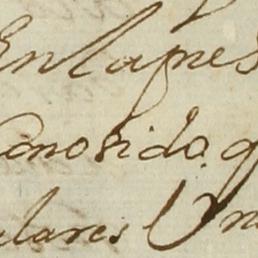 En la pres
Conosido. q
ulares Un